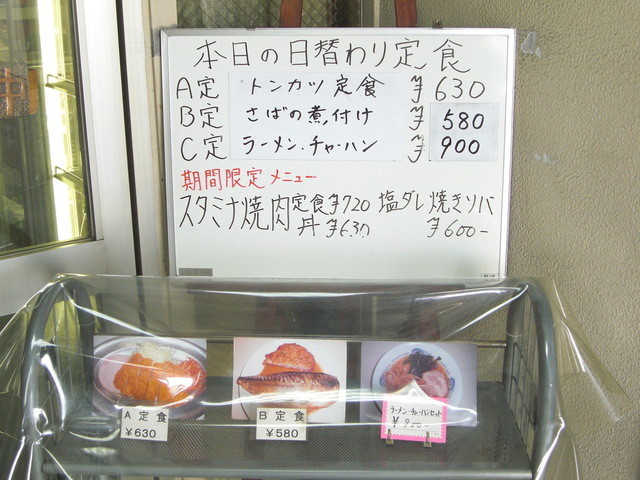 本日の日替わり定食
A定 トンカツ定食 ¥630
B定 さばの煮付け ¥580
C定 ラーメン.チャーハン ¥900
期間限定メニュー
スタミナ焼肉定食¥720 塩ダレ焼きソバ
丼 ¥630 ¥600-
A定食
¥630
B定食
¥580
ラーメン・チャーハンセット
¥900-